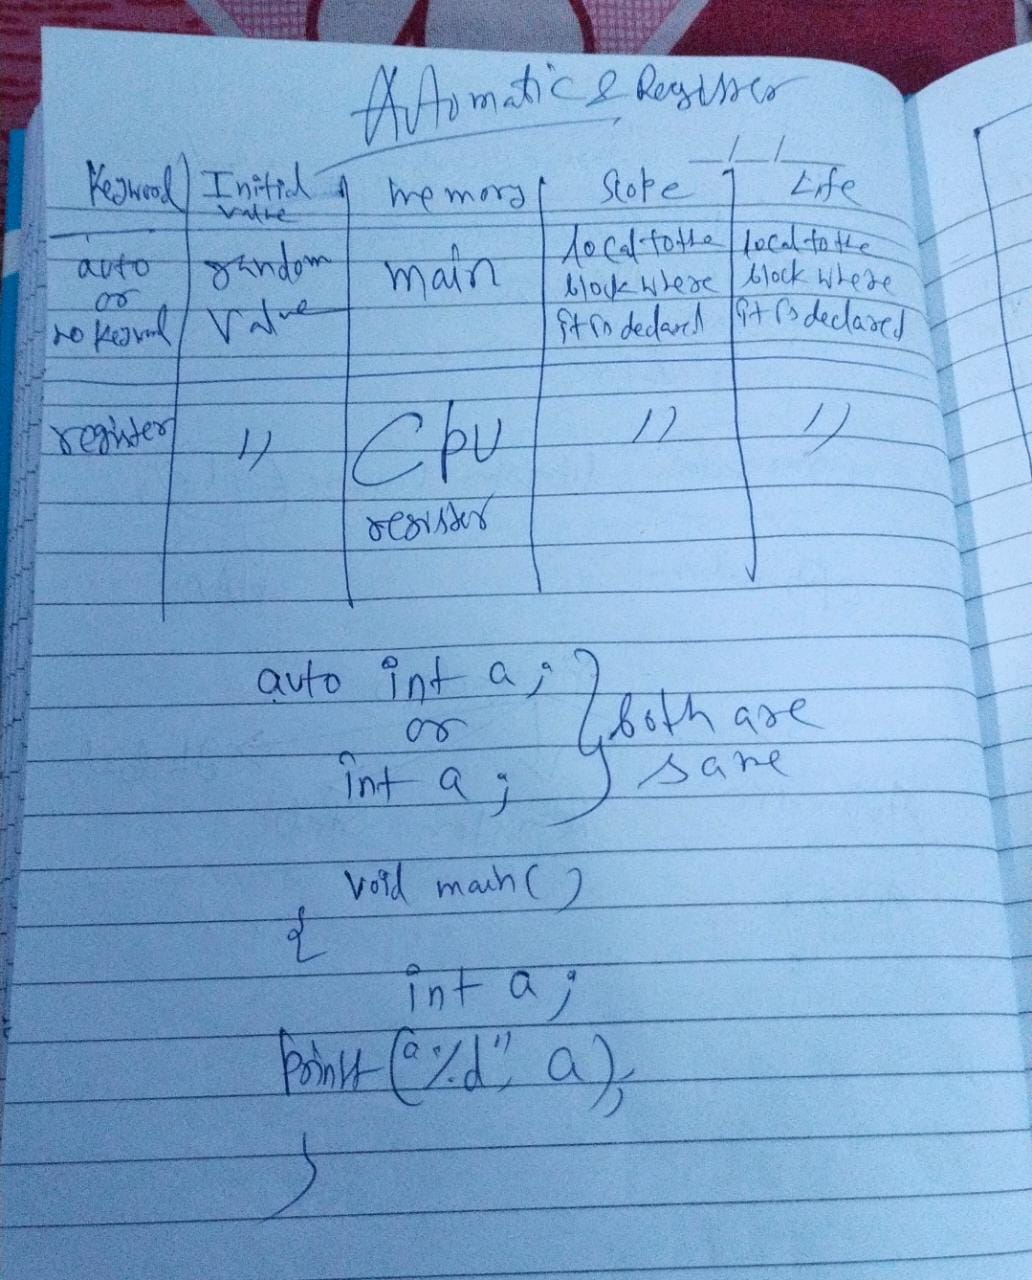 Automatic & Register
Keyword Initial value memory Scope Life
auto or no keyword random value main local to the block where it is declared local to the block where it is declared
register " CPU register " "
auto int a;
or
int a;
} both are same
void main()
{
int a;
printf("%d", a);
}